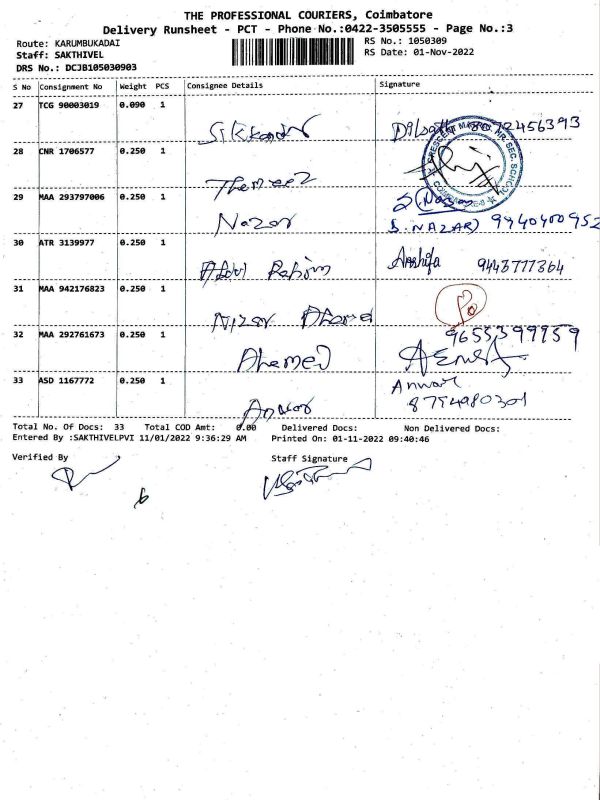 THE PROFESSIONAL COURIERS, Coimbatore
Delivery Runsheet - PCT - Phone No.:0422-3505555 - Page No.:3
Route: KARUMBUKADAI
RS No.: 1050309
Staff: SAKTHIVEL
RS Date: 01-Nov-2022
DRS No.: DCJB105030903
S No Consignment No Weight PCS Consignee Details Signature
27 TCG 90003019 0.090 1
28 CNR 1706577 0.250 1
CRESCENT MATRIC HR. SEC. SCHOOL
29 MAA 293797006 0.250 1
Nazar
S. NAZAR) 9940400952
30 ATR 3139977 0.250 1
Abdul Rahim
Anshifa 9443777364
31 MAA 942176823 0.250 1
Nizar Ahamed
32 MAA 292761673 0.250 1
9655399959
Ahamed
33 ASD 1167772 0.250 1
Anwar
Anwar
8794980301
Total No. Of Docs: 33 Total COD Amt: 0.00 Delivered Docs: Non Delivered Docs:
Entered By :SAKTHIVELPVI 11/01/2022 9:36:29 AM Printed On: 01-11-2022 09:40:46
Verified By
Staff Signature